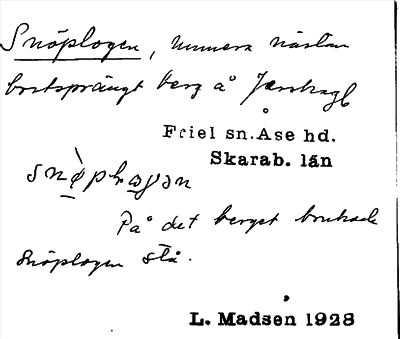 Snöplogen, numera nästan
bortsprängt berg å
Friel sn. Åse hd.
Skarab. län
På det berget brukade
snöplogen stå.
L. Madsen 1928